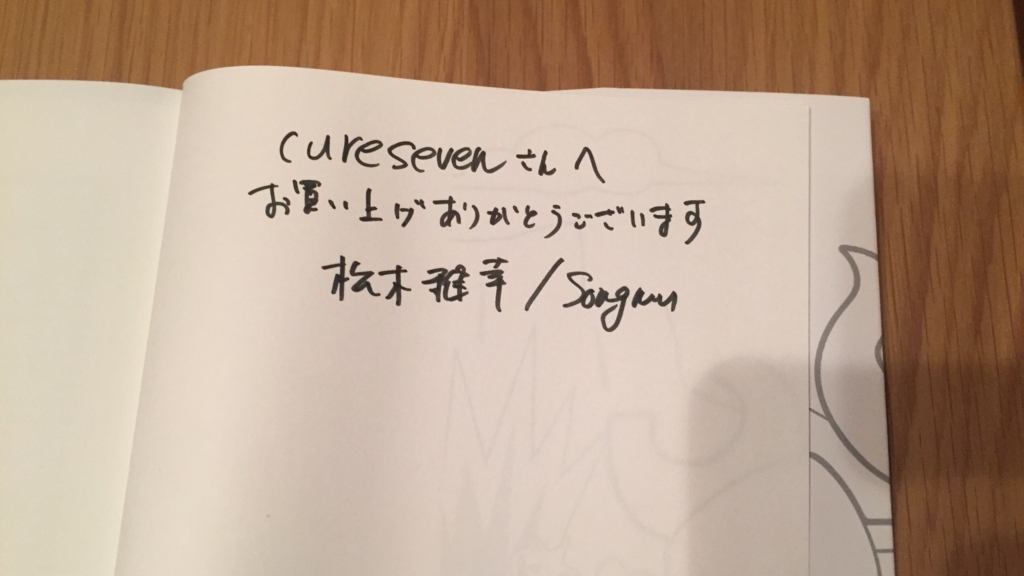 cureseven さんへ
お買い上げありがとうございます
松木雅幸/Songmu